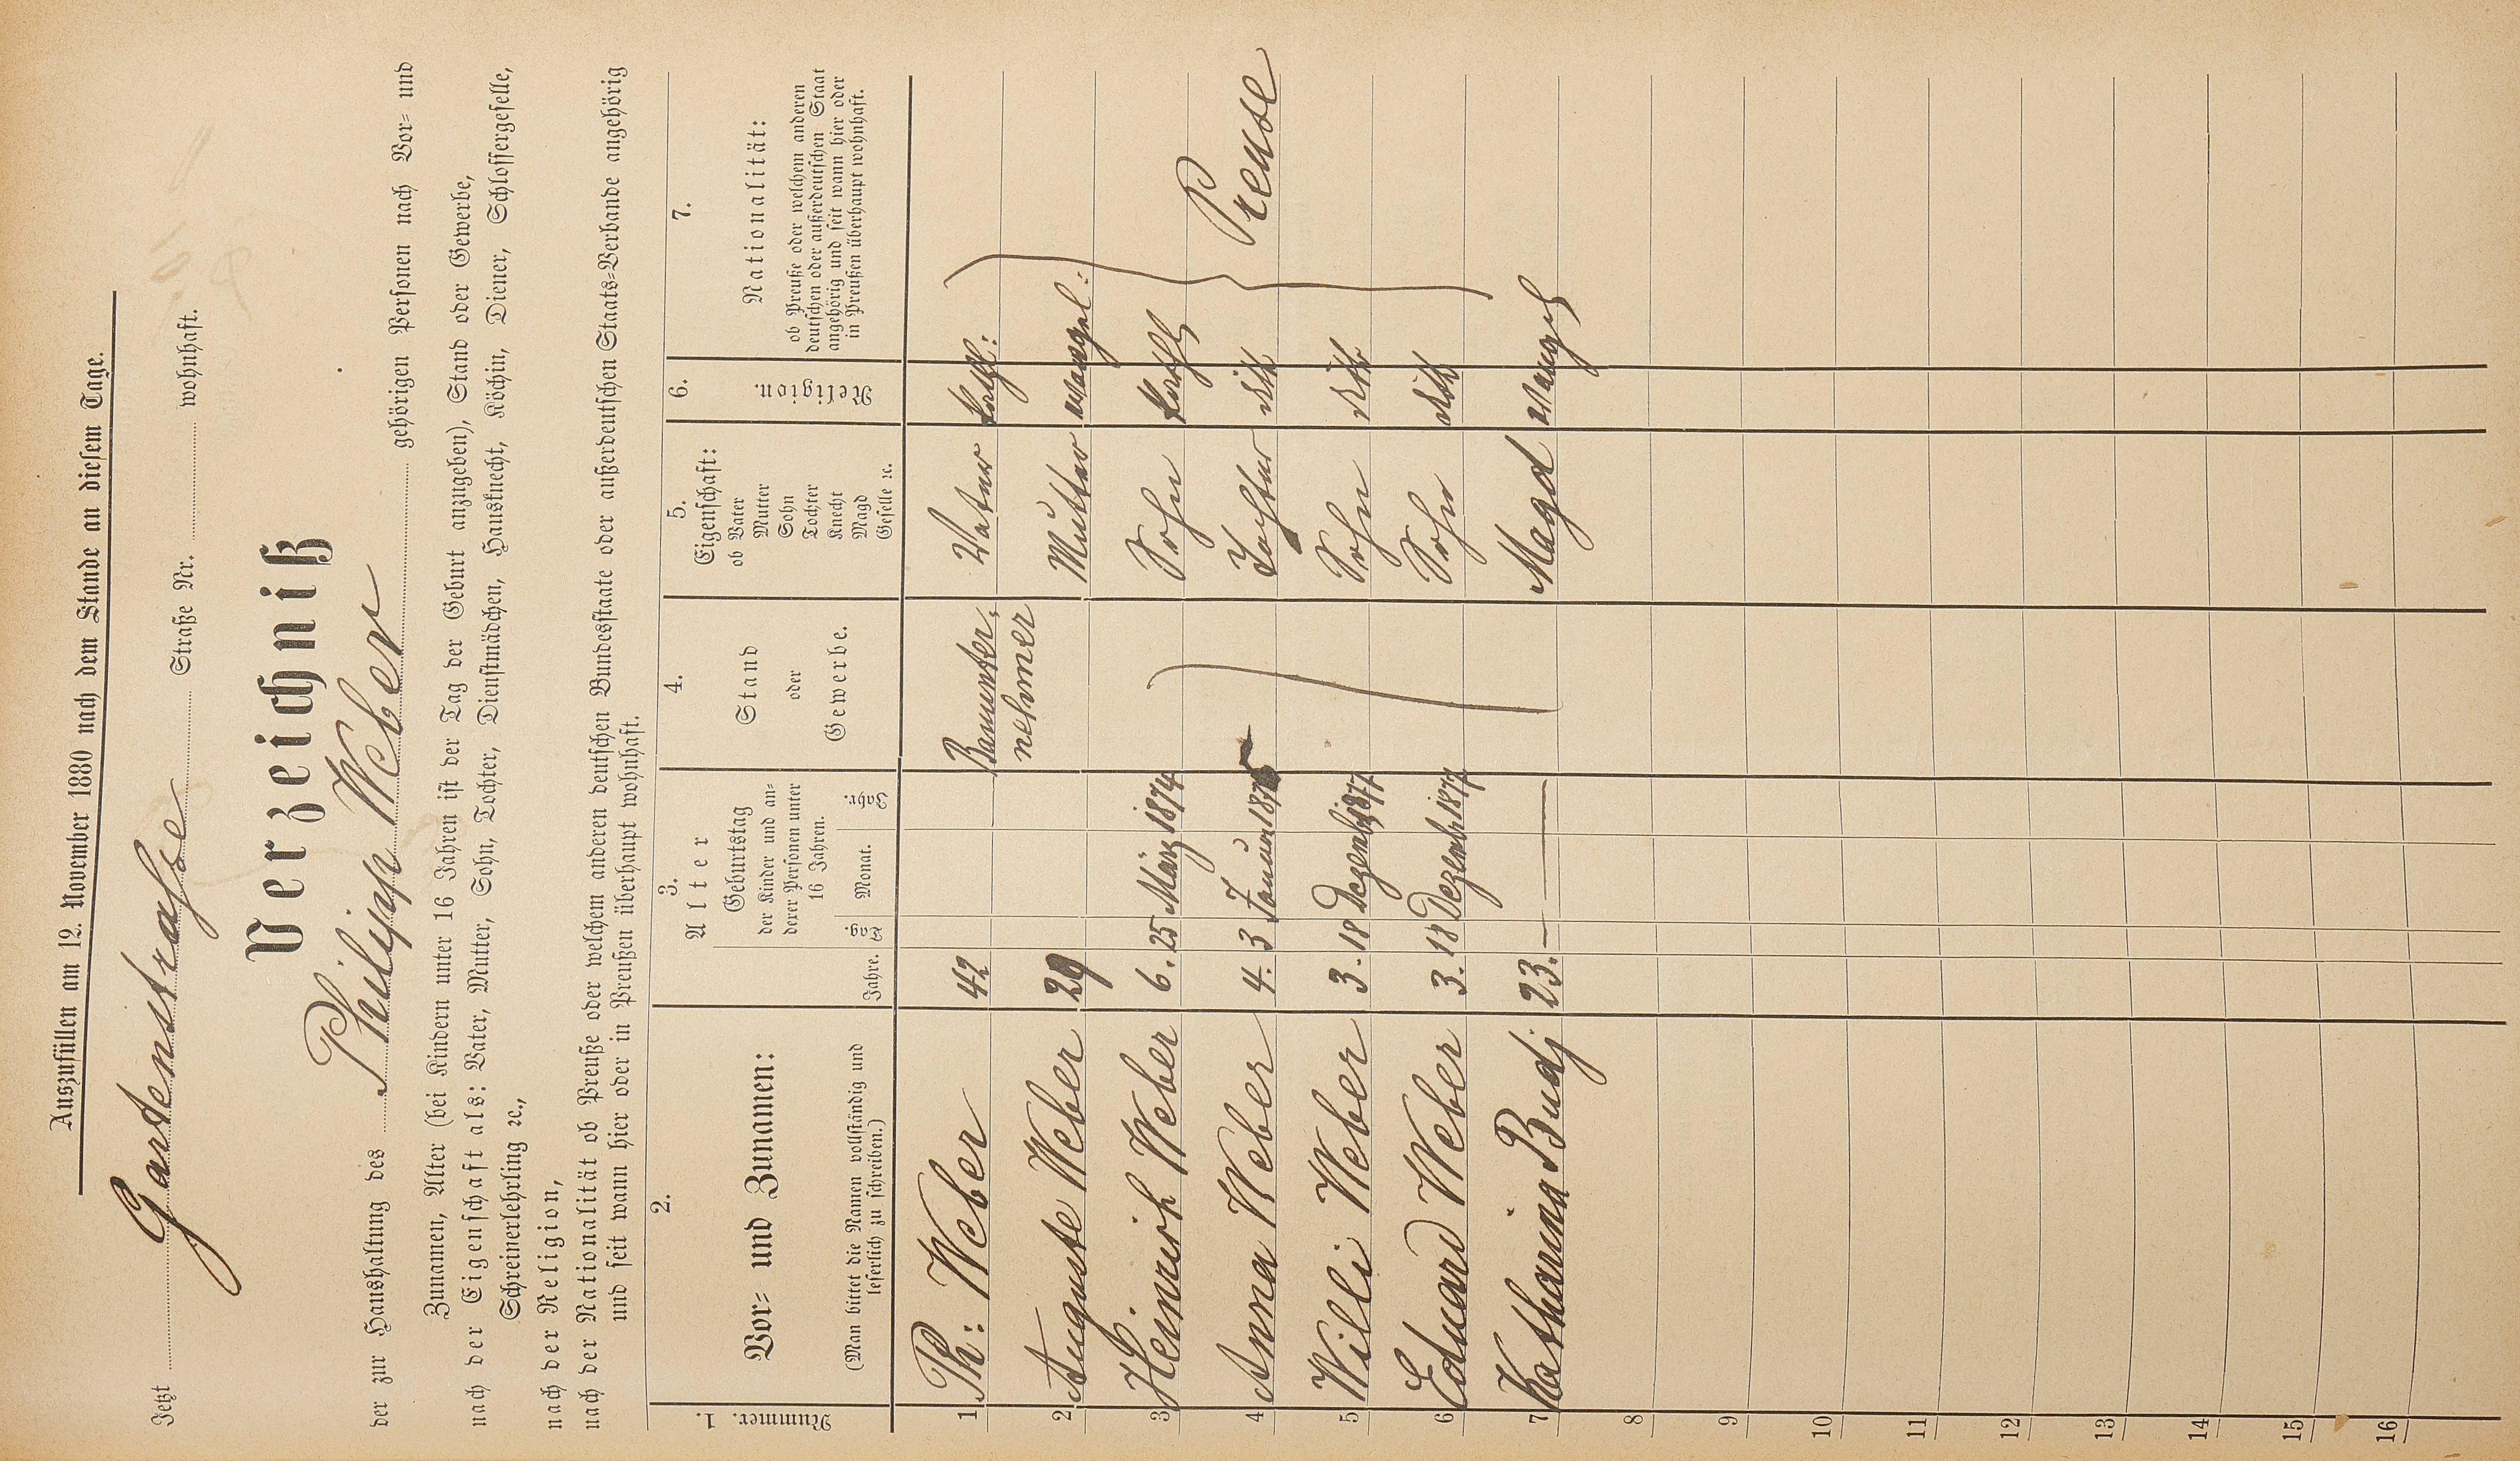 Auszufüllen am 12. November 1880 nach dem Stande an diesem Tage.
Jetzt Gartenstrasse Straße Nr. wohnhaft.
Verzeichniß
der zur Haushaltung des Philipp Weber gehörigen Personen nach Vor- und
Zunamen, Alter (bei Kindern unter 16 Jahren ist der Tag der Geburt anzugeben), Stand oder Gewerbe,
nach der Eigenschaft als: Vater, Mutter, Sohn, Tochter, Dienstmädchen, Hausknecht, Köchin, Diener, Schlossergeselle,
Schreinerlehrling ꝛc.,
nach der Religion,
nach der Nationalität ob Preuße oder welchem anderen deutschen Bundesstaate oder außerdeutschen Staats-Verbande angehörig
und seit wann hier oder in Preußen überhaupt wohnhaft.
1. Nummer.
2.
Vor- und Zunamen:
(Man bittet die Namen vollständig und
leserlich zu schreiben.)
3.
Alter
Jahre.
Geburtstag
der Kinder und an-
derer Personen unter
16 Jahren.
Tag. Monat. Jahr.
4.
Stand
oder
Gewerbe.
5.
Eigenschaft:
ob Vater
Mutter
Sohn
Tochter
Knecht
Magd
Geselle ꝛc.
6.
Religion.
7.
Nationalität:
ob Preuße oder welchem anderen
deutschen oder außerdeutschen Staat
angehörig und seit wann hier oder
in Preußen überhaupt wohnhaft.
1 Ph: Weber 42 Bauunter- Vater kathl:
nehmer
2 Auguste Weber 29 Mutter evangel:
3 Heinrich Weber 6. 25 März 1874 Sohn kathl
4 Anna Weber 4. 3 Januar 1876 Tochter dito Preuse
5 Willi Weber 3. 18 Dezemb 1877 Sohn dito
6 Eduard Weber 3. 18 Dezemb. 1877 Sohn dito
7 Katharina Budj 23. — — Magd evangel
8
9
10
11
12
13
14
15
16